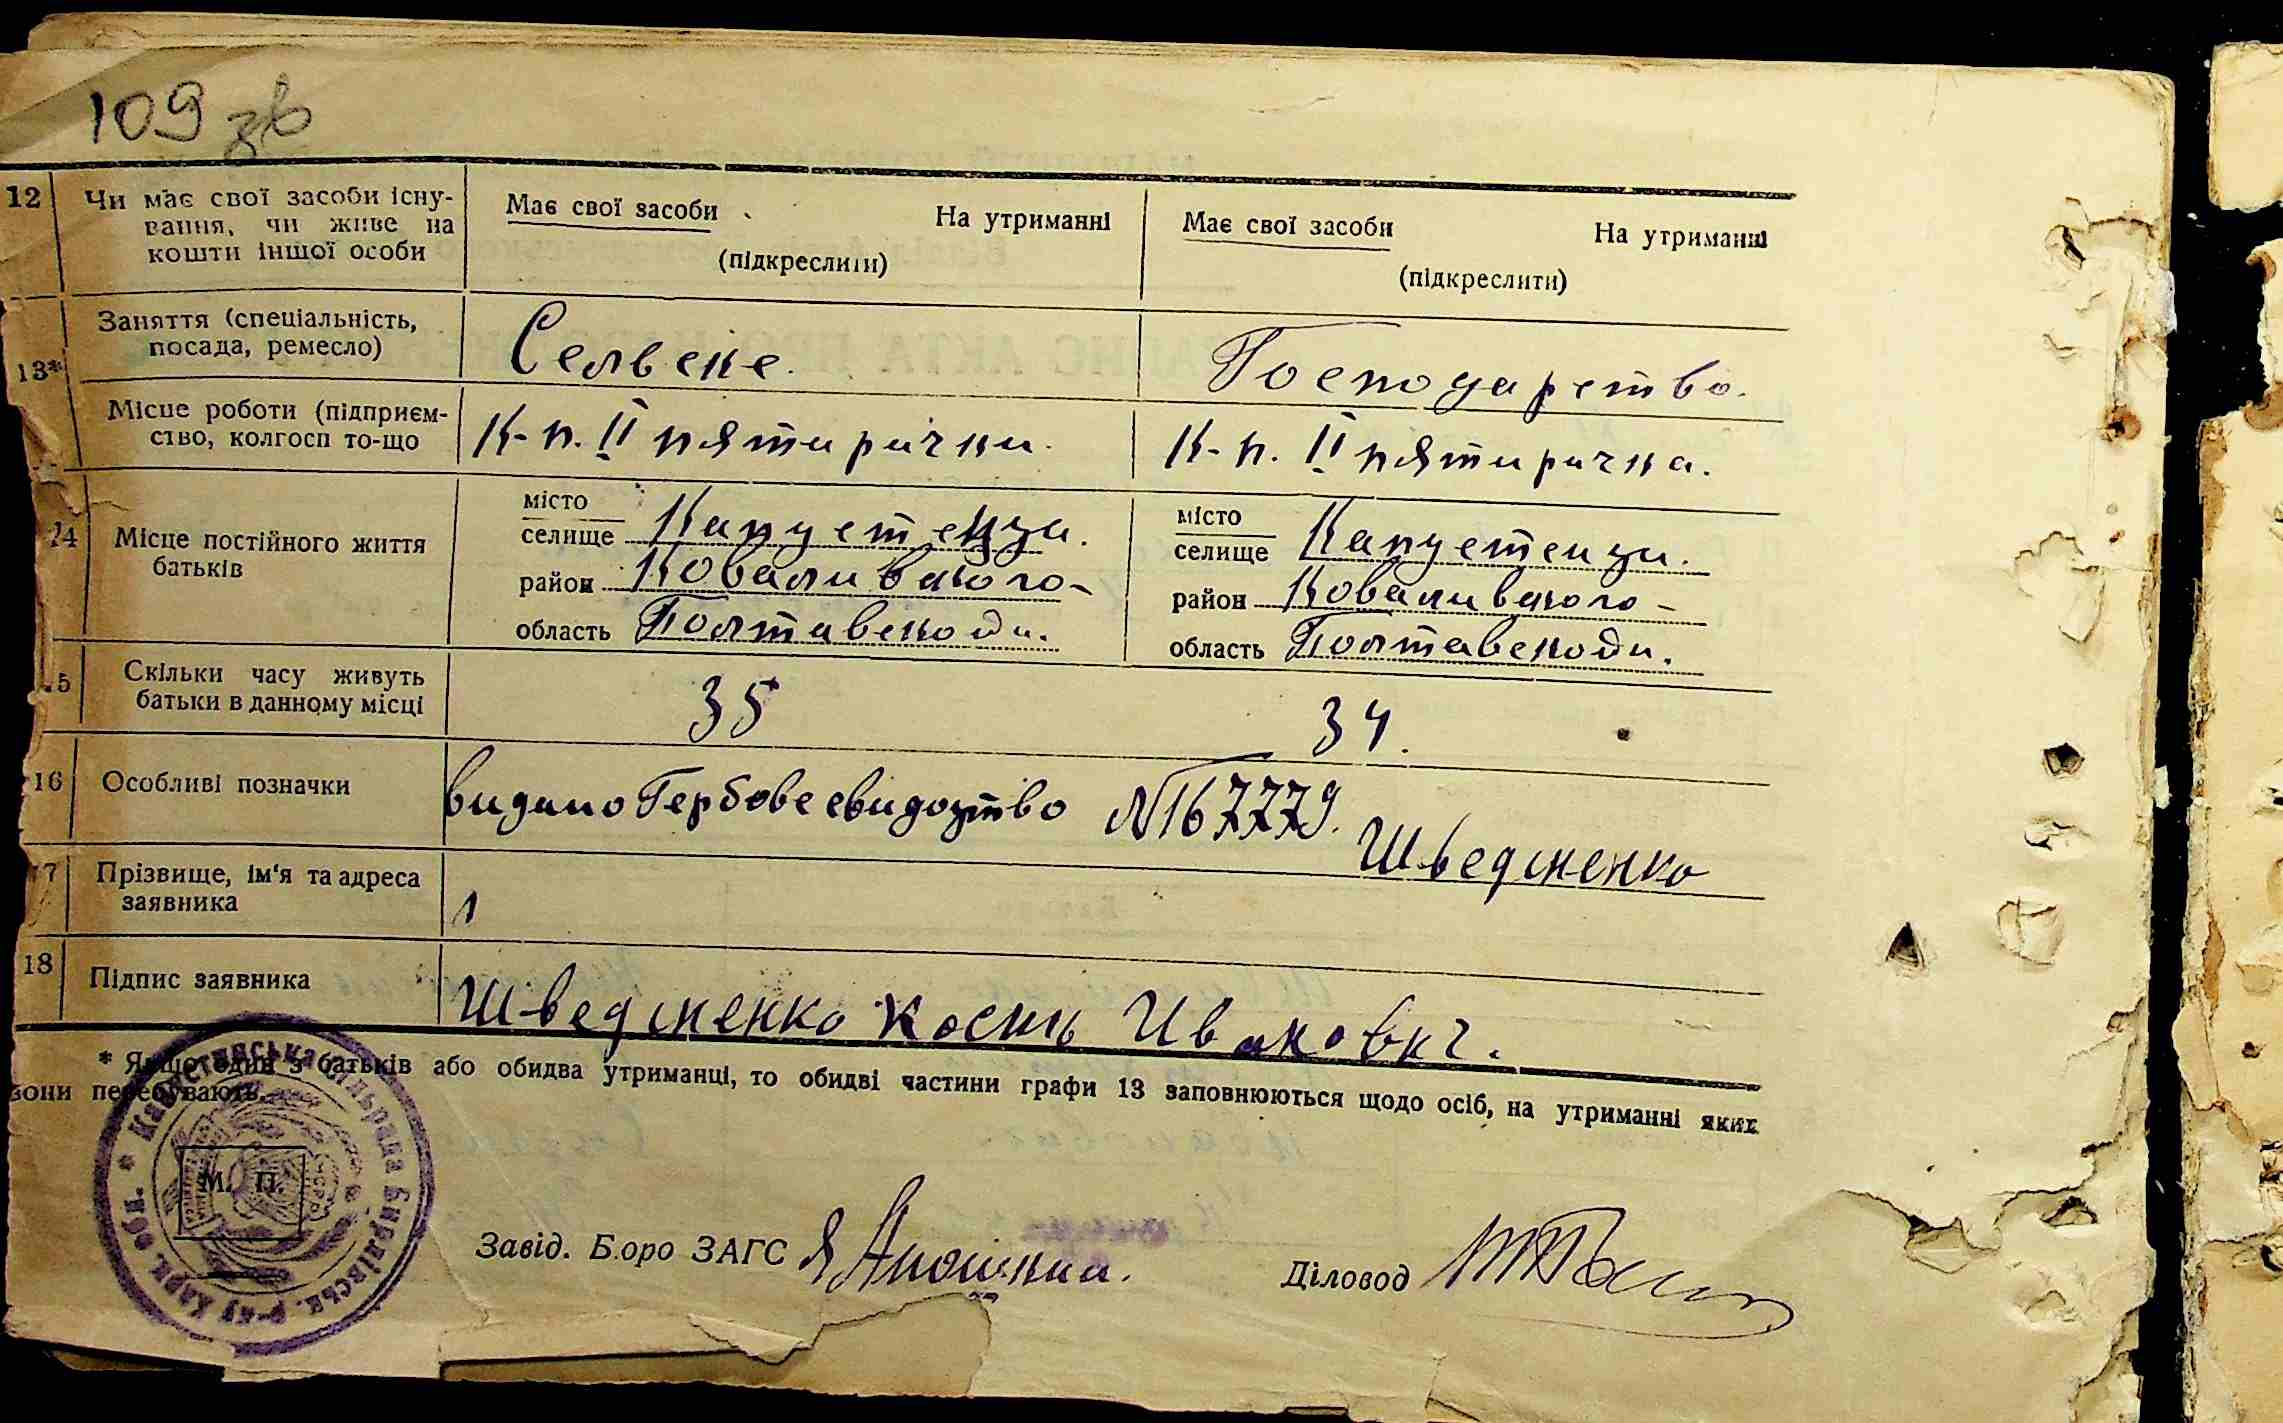 109 зв
12 Чи має свої засоби існу- Має свої засоби На утриманні Має свої засоби На утриманні
вання, чи живе на
кошти іншої особи (підкреслити) (підкреслити)
13* Заняття (спеціальність, Сельське. Господарство.
посада, ремесло)
Місце роботи (підприєм- К-п. ІІ пятирички. К-п. ІІ пятиричка.
ство, колгосп то-що
14 Місце постійного життя місто місто
батьків селище Капустенци. селище Капустенци.
район Коваливського- район Коваливського-
область Полтавської области. область Полтавської области.
15 Скільки часу живуть 35 34.
батьки в данному місці
16 Особливі позначки видано Гербове свидоцтво №167779.
17 Прізвище, ім'я та адреса Шведененко
заявника
18 Підпис заявника Шведененко Кость Иванович.
* Якщо один з батьків або обидва утриманці, то обидві частини графи 13 заповнюються щодо осіб, на утриманні яких
вони перебувають.
Капустинська сільрада Бирлівськ. р-ну Харк. обл.
М. П.
Завід. Бюро ЗАГС
Діловод